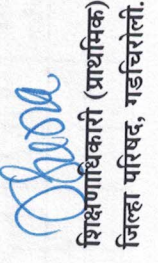 शिक्षणाधिकारी (प्राथमिक)
जिल्हा परिषद, गडचिरोली.